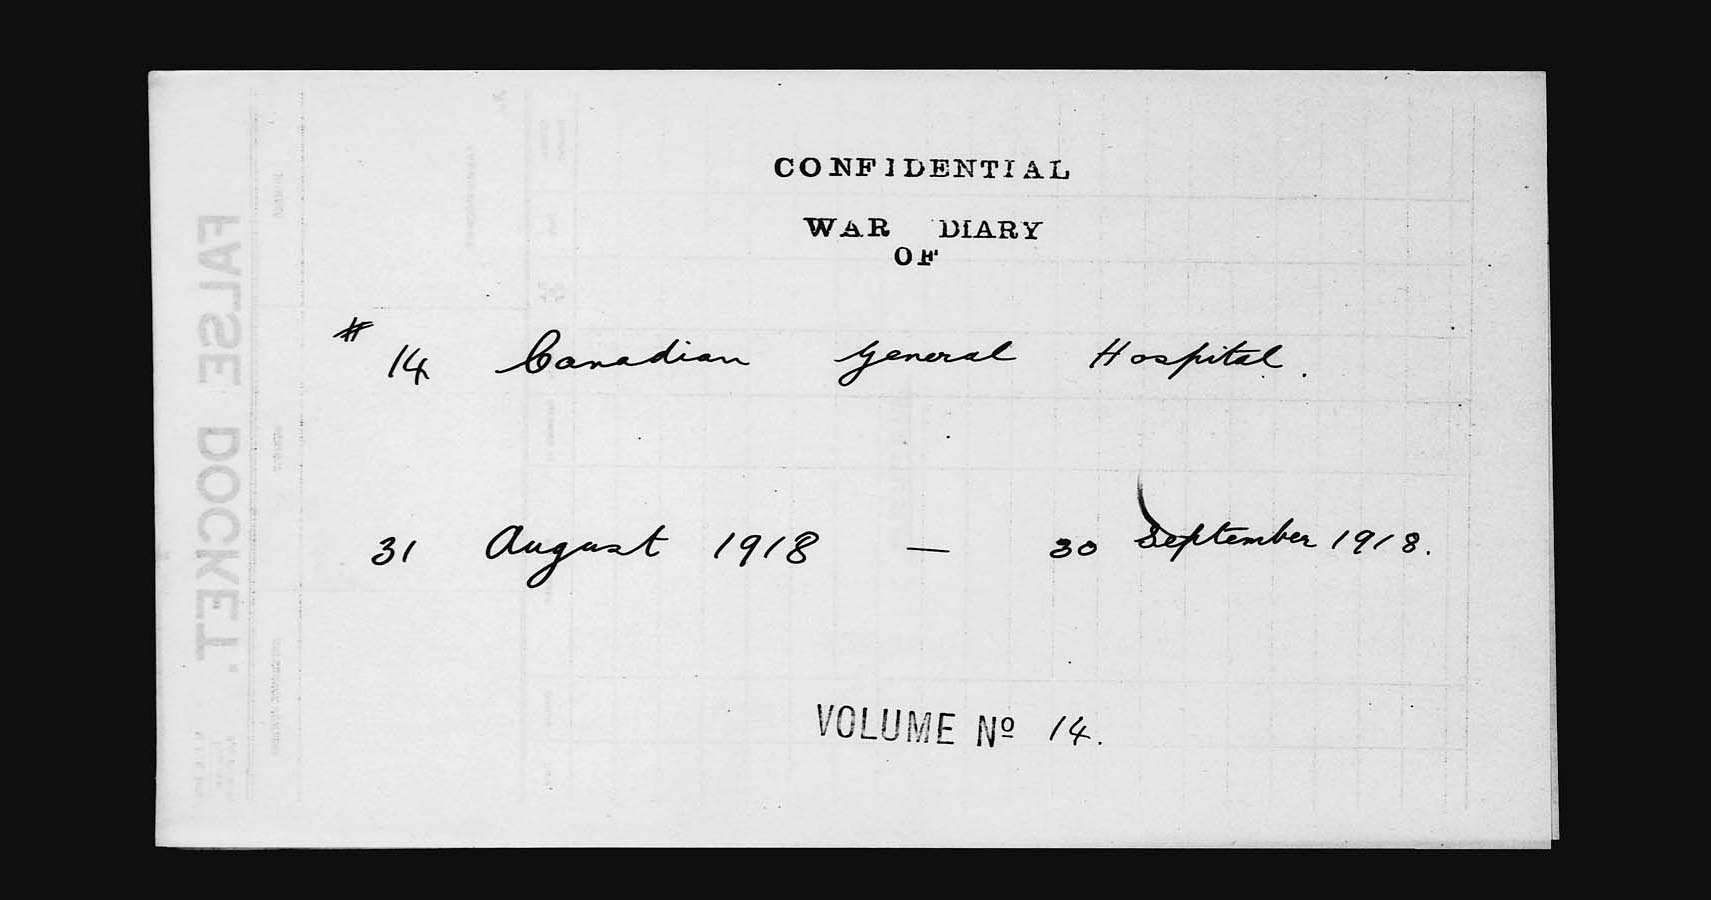 CONFIDENTIAL
WAR DIARY
OF
# 14 Canadian General Hospital.
31 August 1918 — 30 September 1918.
VOLUME Nº 14.
FALSE DOCKET.